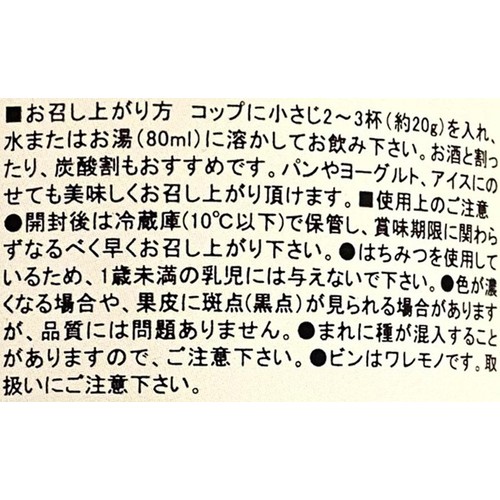 ■お召し上がり方 コップに小さじ2～3杯(約20g)を入れ、
水またはお湯(80ml)に溶かしてお飲み下さい。お酒と割っ
たり、炭酸割もおすすめです。パンやヨーグルト、アイスにの
せても美味しくお召し上がり頂けます。■使用上のご注意
●開封後は冷蔵庫(10℃以下)で保管し、賞味期限に関わら
ずなるべく早くお召し上がり下さい。●はちみつを使用して
いるため、1歳未満の乳児には与えないで下さい。●色が濃
くなる場合や、果皮に斑点(黒点)が見られる場合があります
が、品質には問題ありません。●まれに種が混入すること
がありますので、ご注意下さい。●ビンはワレモノです。取
扱いにご注意下さい。